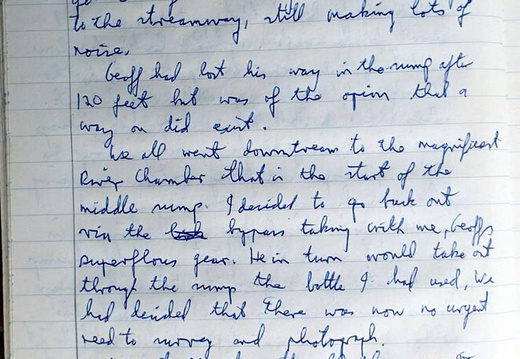 to the streamway, still making lots of
noise.
Geoff had lost his way in the sump after
120 feet but was of the opion that a
way on did exist.
We all went downstream to the magnificent
River Chamber that is the start of the
middle sump. I decided to go back out
via the bypass taking with me, Geoffs
superflous gear. He in turn would take out
through the sump the bottle I had used, we
had decided that there was now no urgent
need to survey and photograph.